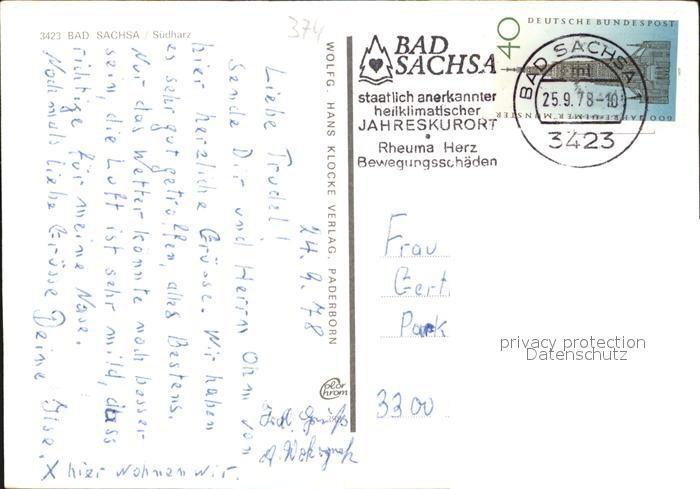 3423 BAD SACHSA / Südharz
374
24.9.78
Liebe Trudel!
Sende Dir und Herrn Ohm von
hier herzliche Grüsse. Wir haben
es sehr gut getroffen, alles Bestens.
Nur das Wetter könnte noch besser
sein, die Luft ist sehr mild, das
richtige für meine Nase.
Nochmals liebe Grüsse Deine Ilse.
X hier wohnen wir.
WOLFG. HANS KLOCKE VERLAG, PADERBORN
Color
chrom
BAD
SACHSA
staatlich anerkannter
heilklimatischer
JAHRESKURORT
Rheuma Herz
Bewegungsschäden
BAD SACHSA
25.9.78-10
3423
DEUTSCHE BUNDESPOST
40
600 JAHRE ULMER MÜNSTER
Frau
Gert
Park
3300
privacy protection
Datenschutz